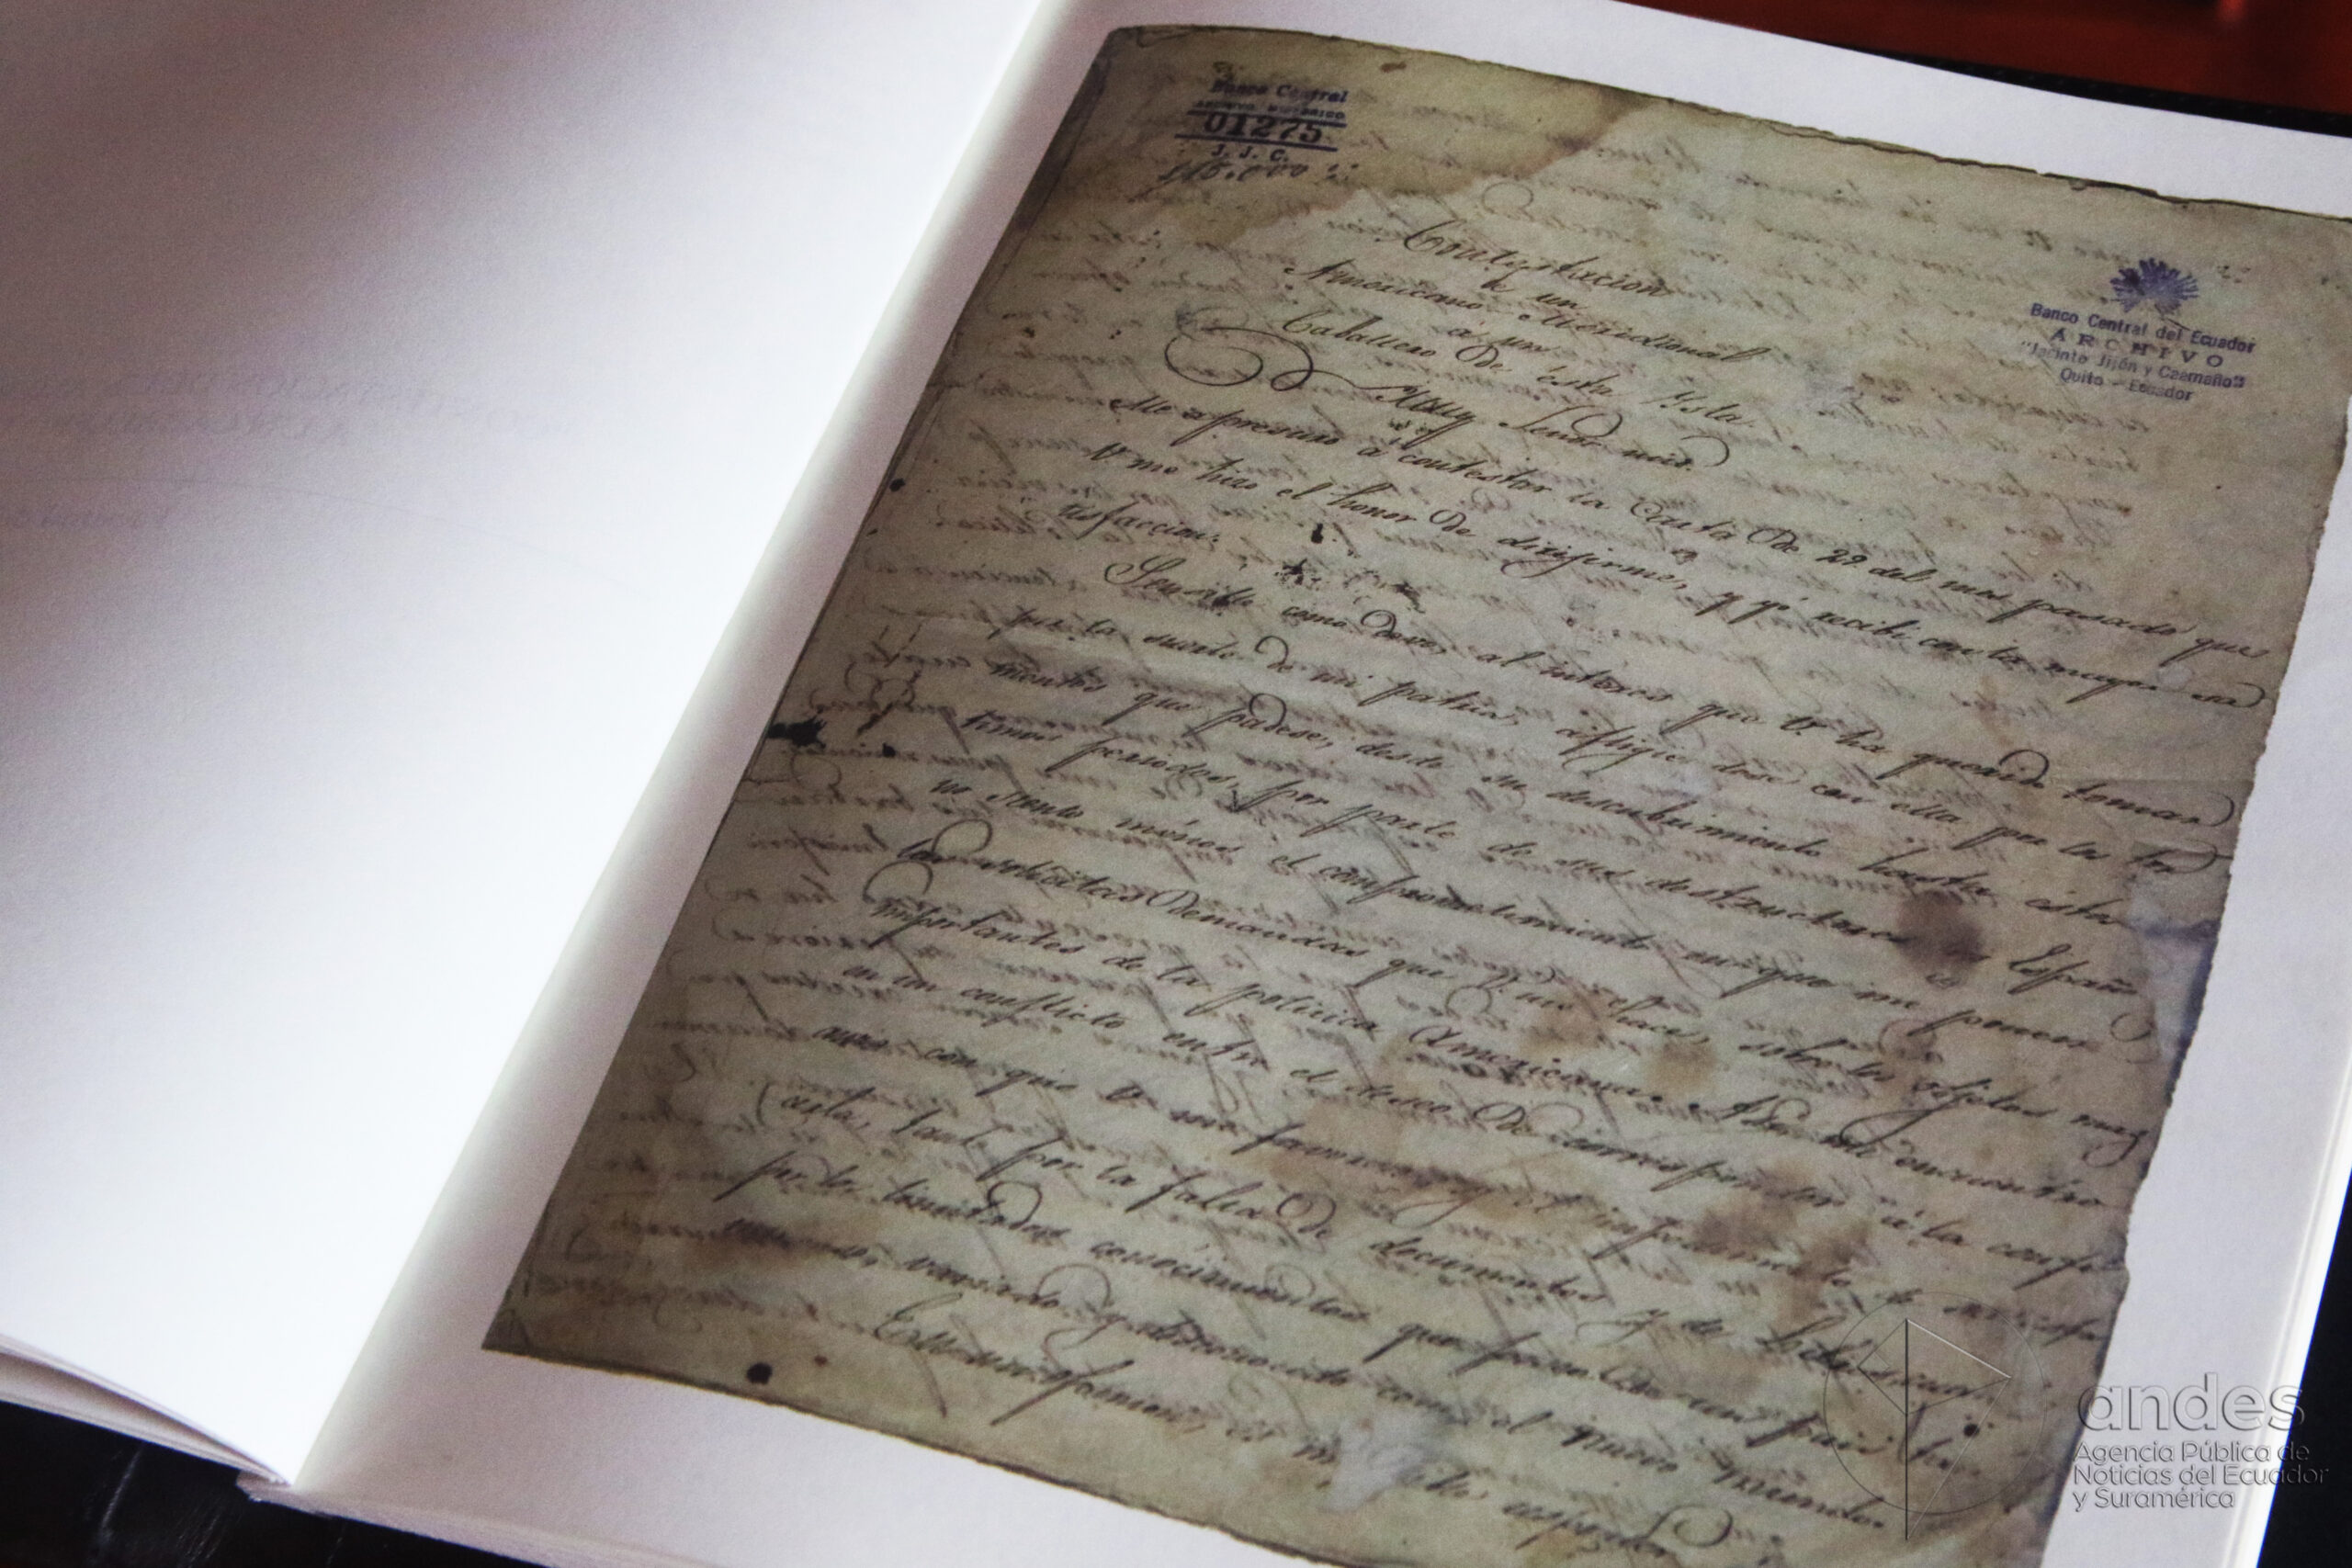 Banco Central
ARCHIVO HISTORICO
01275
J. J. C.
Banco Central del Ecuador
ARCHIVO
"Jacinto Jijón y Caamaño"
Quito - Ecuador
Contestacion
de un
Americano Meridional
á un
Caballero de esta Ysla.
Muy Señor mio
Me apresuro á contestar la Carta de 29 del mes pasado que
V. me hizo el honor de dirigirme, y yo recibi con la mayor sa
tisfaccion.
Sensible como devo, al interes que V. ha querido tomar
por la suerte de mi patria, afligiendose con ella por los tor
mentos que padese, desde su descubrimiento hasta estos
timos periodos, por parte de sus destructores los Españo
no siento ménos el comprometimiento en que me ponen
las solicitas demandas que V. me hace, sobre los objetos mas
importantes de la politica Americana. Asi, me encuentro
en un conflicto entre el deseo de corresponder á la confi
con que V. me favorece, y el impedimento de satisfa
cerla, tanto por la falta de documentos y de libros, cuanto
por los limitados conocimientos que poseo de un pais tan
inmenso, variado y desconocido como el nuevo mundo.
En mi opinion, es responder
andes
Agencia Pública de
Noticias del Ecuador
y Suramérica